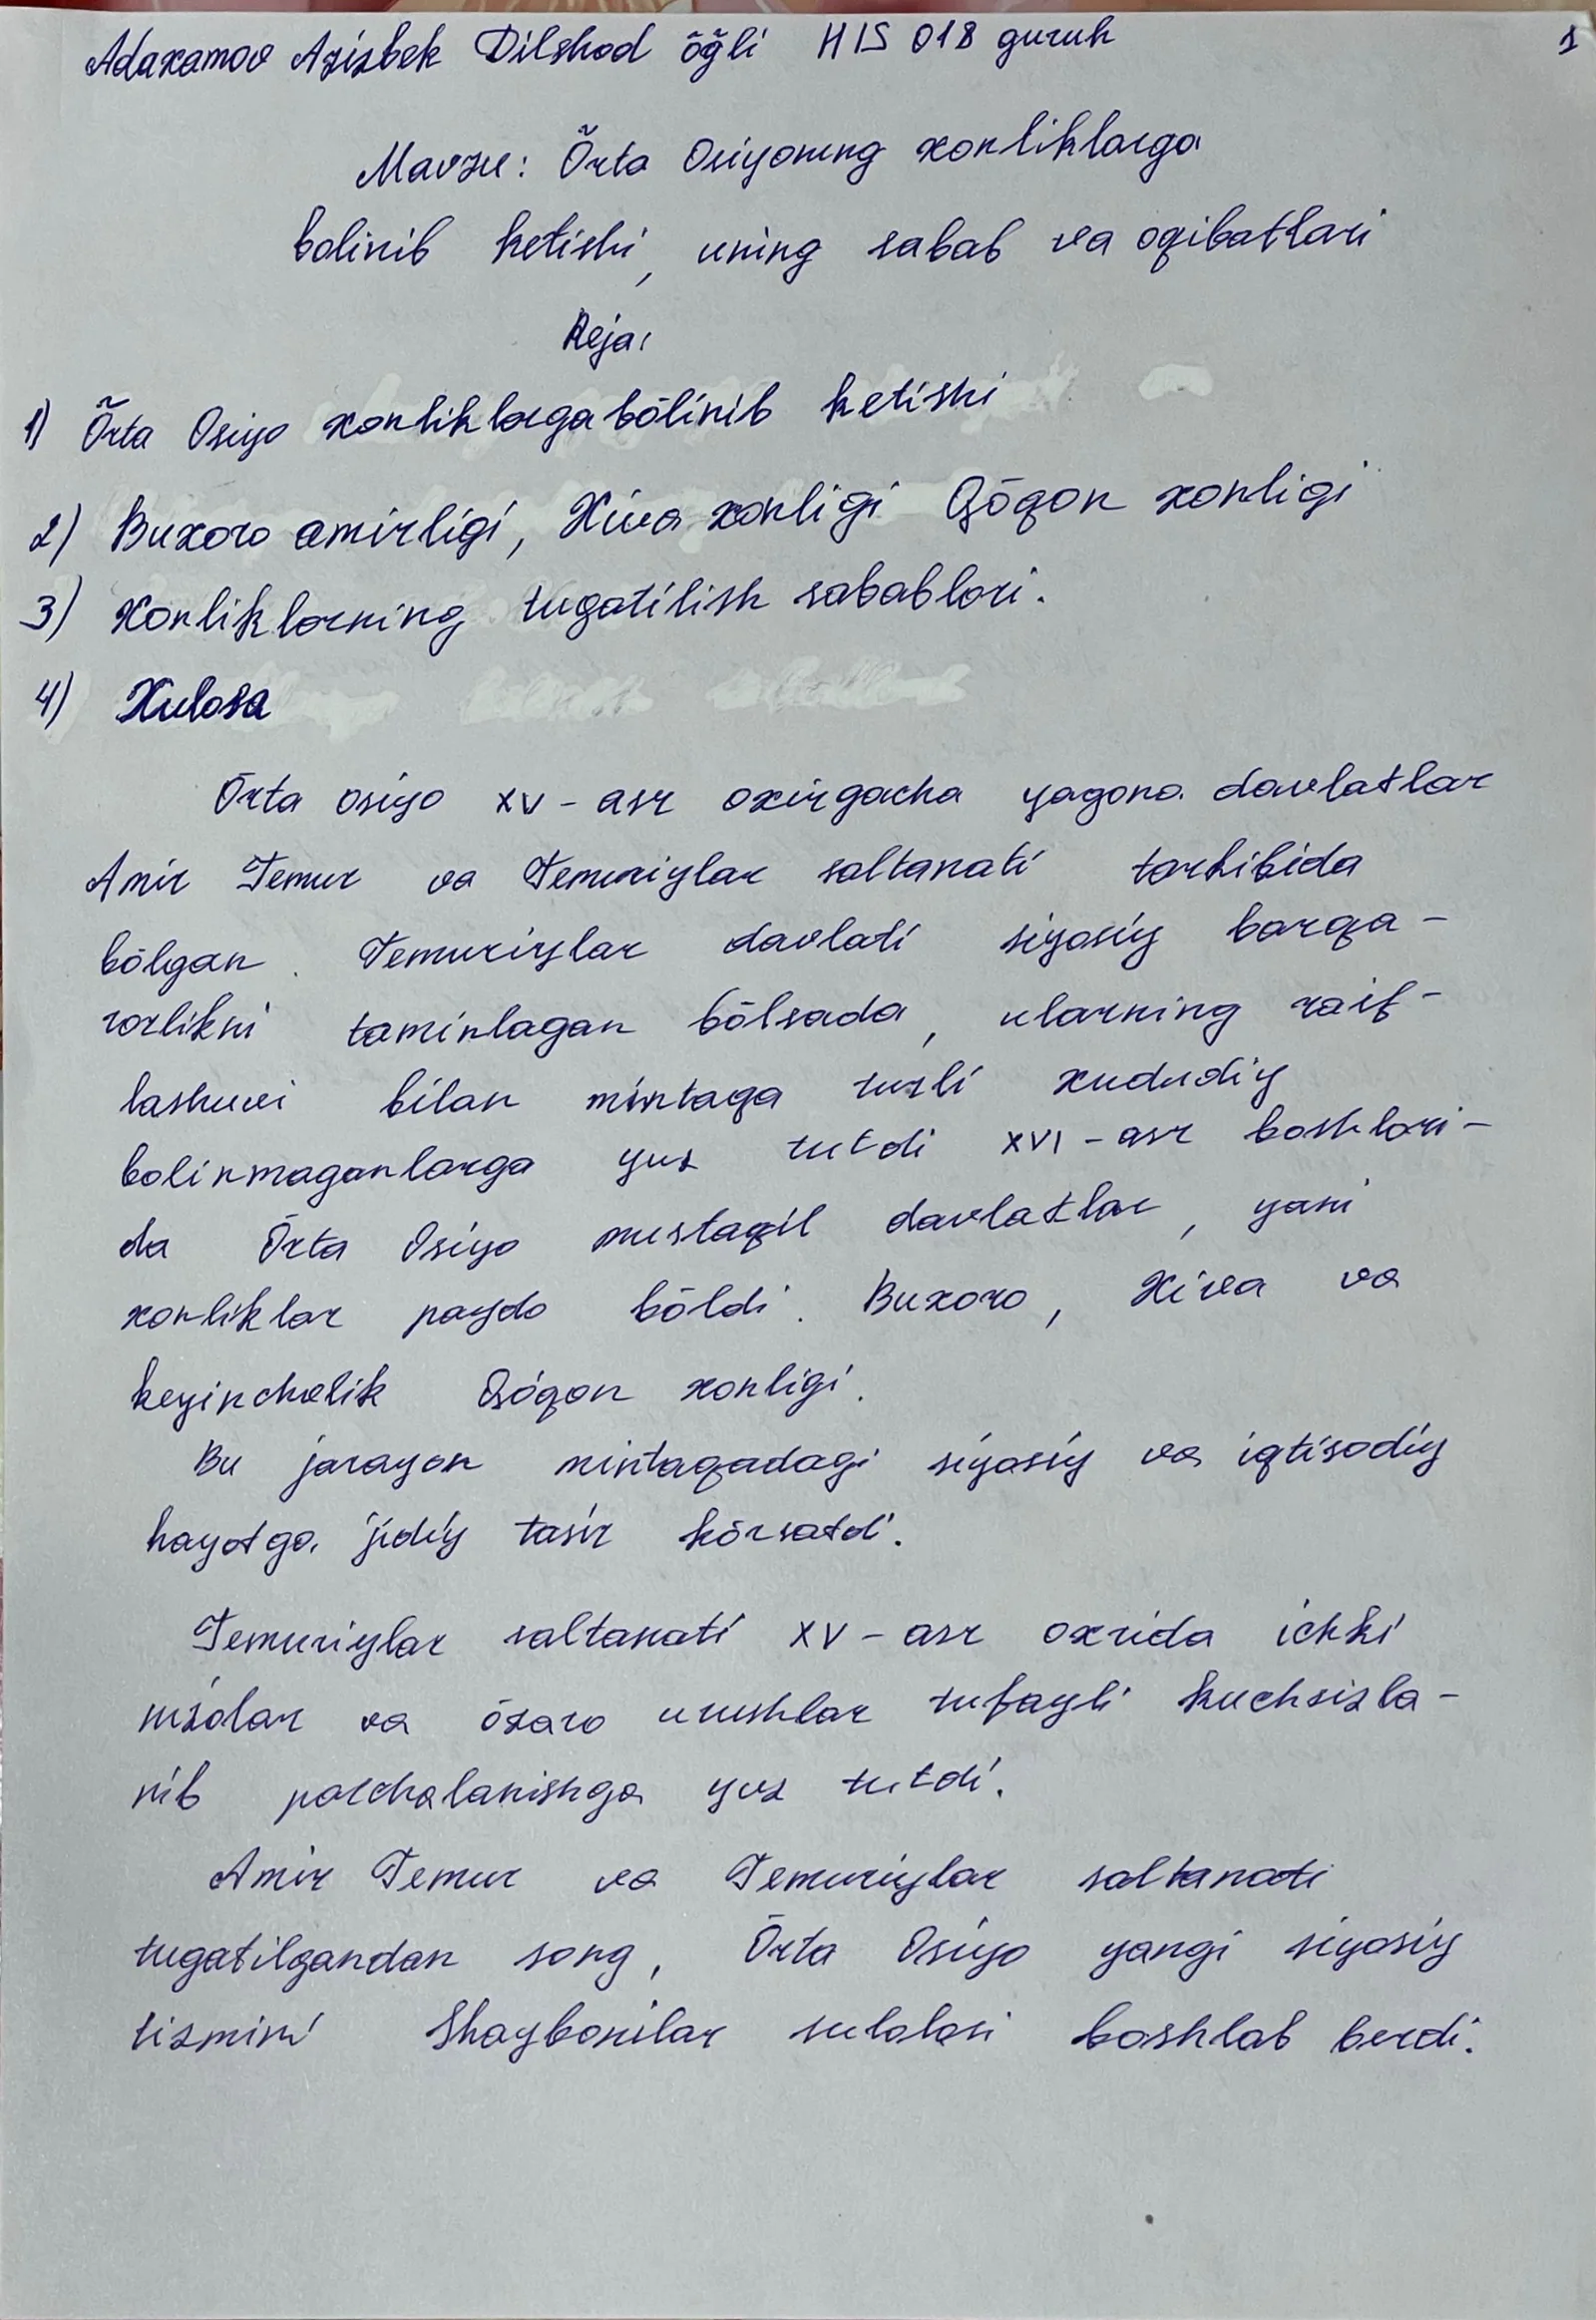 Adaxamov Azizbek Dilshod õğli HIS 018 guruh 1
Mavzu: Õrta Osiyoning xonliklarga
bolinib ketishi, uning sabab va oqibatlari
Reja:
1) Õrta Osiyo xonliklarga bōlinib ketishi
2) Buxoro amirligi, Xiva xonligi Qōqon xonligi
3) Xonliklarning tugatilish sabablari.
4) Xulosa
Ōrta osiyo XV - asr oxirgacha yagona davlatlar
Amir Temur va Temuriylar saltanati tarkibida
bōlgan. Temuriylar davlati siyosiy barqa-
rorlikni taminlagan bōlsada, ularning zaif-
lashuvi bilan mintaqa turli xududiy
bolinmaganlarga yuz tutdi XVI - asr boshlari-
da Ōrta Osiyo mustaqil davlatlar, yani
xonliklar paydo bōldi. Buxoro, Xiva va
keyinchalik Qóqon xonligi.
Bu jarayon mintaqadagi siyosiy va iqtisodiy
hayotga jidiy tasir kōrsatdi.
Temuriylar saltanati XV - asr oxrida ichki
nizolar va ōzaro urushlar tufayli kuchsizla-
nib parchalanishga yuz tutdi.
Amir Temur va Temuriylar saltanati
tugatilgandan song, Ōrta Osiyo yangi siyosiy
tizmini Shaybonilar sulolasi boshlab berdi.